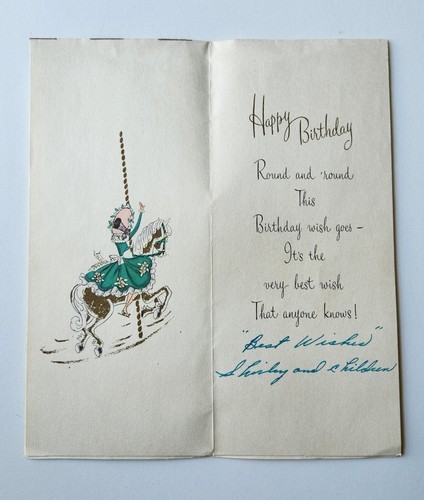 Happy
Birthday
Round and 'round
This
Birthday wish goes –
It's the
very best wish
That anyone knows!
"Best Wishes"
Shirley and children